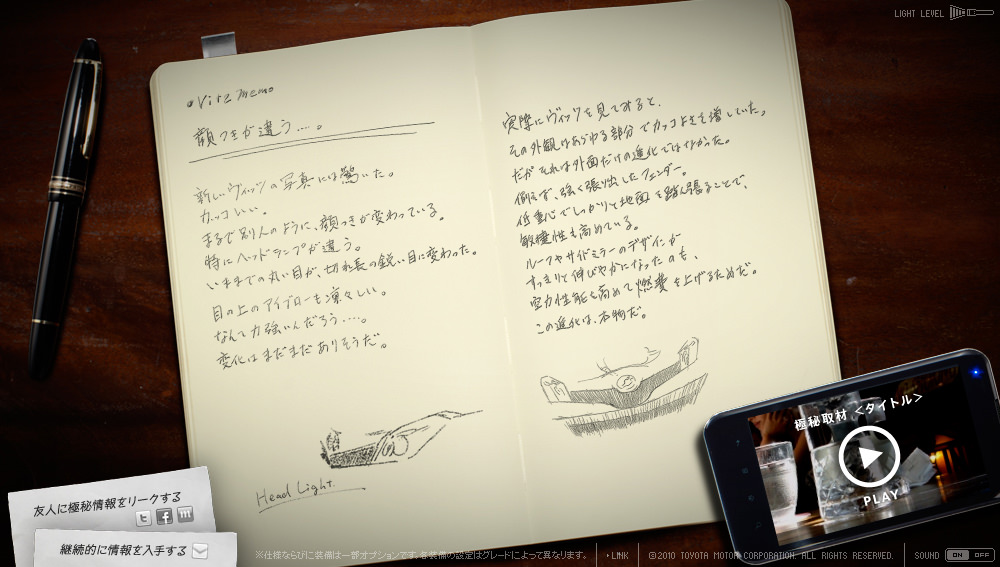 LIGHT LEVEL
Vitz memo
顔つきが違う….。
新しいヴィッツの写真には驚いた。
カッコいい。
まるで別人のように、顔つきが変わっている。
特にヘッドランプが違う。
いままでの丸い目が、切れ長の鋭い目に変わった。
目の上のアイブローも凛々しい。
なんて力強いんだろう….。
変化はまだまだありそうだ。
Head Light.
実際にヴィッツを見てみると、
その外観はあらゆる部分でカッコよさを増していた。
だがそれは外面だけの進化ではなかった。
例えば、強く張り出したフェンダー。
低重心でしっかりと地面を踏ん張ることで、
敏捷性も高めている。
ルーフやサイドミラーのデザインが
すっきりと伸びやかになったのも、
空力性能を高めて燃費を上げるためだ。
この進化は、本物だ。
極秘取材 <タイトル>
PLAY
友人に極秘情報をリークする
t f m
継続的に情報を入手する
※仕様ならびに装備は一部オプションです。各装備の設定はグレードによって異なります。
LINK
©2010 TOYOTA MOTOR CORPORATION. ALL RIGHTS RESERVED.
SOUND ON OFF